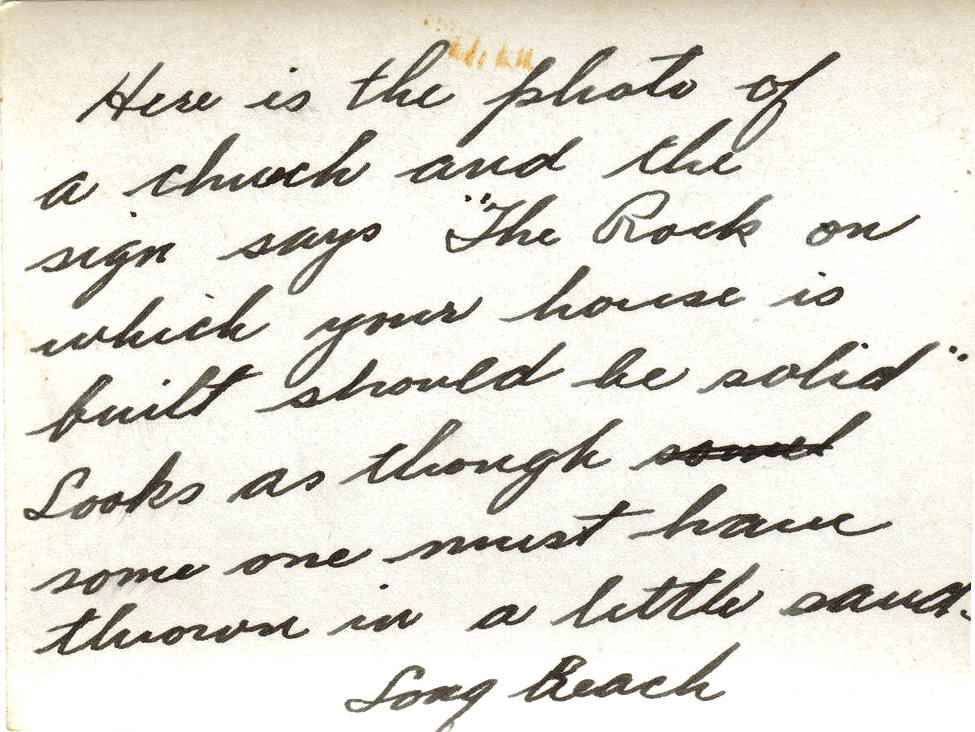 Here is the photo of
a chuch and the
sign says "The Rock on
which your house is
built should be solid"
Looks as though
some one must have
thrown in a little sand.
Long Beach